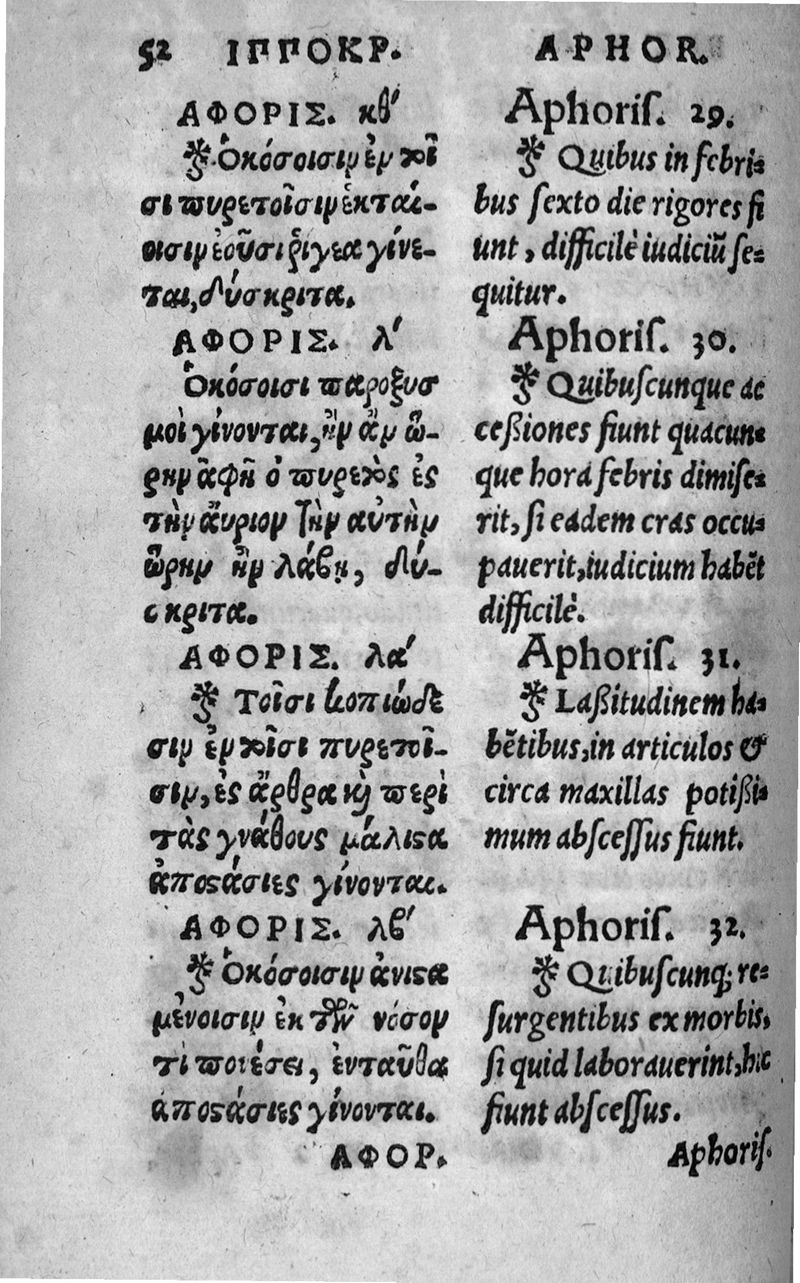 52 ΙΠΠΟΚΡ.
ΑΦΟΡΙΣ. κθʹ
Ὁκόσοισιν ἐν τοῖ
σι πυρετοῖσιν ἑκταί-
οισιν ἐοῦσι ῥίγεα γίνε-
ται, δύσκριτα.
ΑΦΟΡΙΣ. λʹ
Ὁκόσοισι παροξυσ
μοὶ γίνονται, ἢν ἂν ὥ-
ρην ἀφῇ ὁ πυρετὸς ἐς
τὴν ἄυριον τὴν αὐτὴν
ὥρην ἢν λάβῃ, δύ-
σκριτα.
ΑΦΟΡΙΣ. λαʹ
Τοῖσι κοπιώδε
σιν ἐν τοῖσι πυρετοῖ-
σιν, ἐς ἄρθρα καὶ περὶ
τὰς γνάθους μάλιϛα
ἀποϛάσιες γίνονται.
ΑΦΟΡΙΣ. λβʹ
Ὁκόσοισιν ἀνιϛα
μένοισιν ἐκ τῶν νόσον
τὶ ποιέσει, ἐνταῦθα
ἀποϛάσιες γίνονται.
ΑΦΟΡ.
APHOR.
Aphoriſ. 29.
Quibus in febri-
bus ſexto die rigores fi
unt, difficilè iudiciũ ſe-
quitur.
Aphoriſ. 30.
Quibuſcunque ac
ceßiones fiunt quacun-
que horá febris dimiſe-
rit, ſi eádem cras occu-
pauerit, iudicium habẽt
difficilè.
Aphoriſ. 31.
Laßitudinem ha-
bẽtibus, in articulos &
circa maxillas potißi-
mum abſceſſus fiunt.
Aphoriſ. 32.
Quibuſcunq; re-
ſurgentibus ex morbis,
ſi quid laborauerint, hic
fiunt abſceſſus.
Aphoriſ.